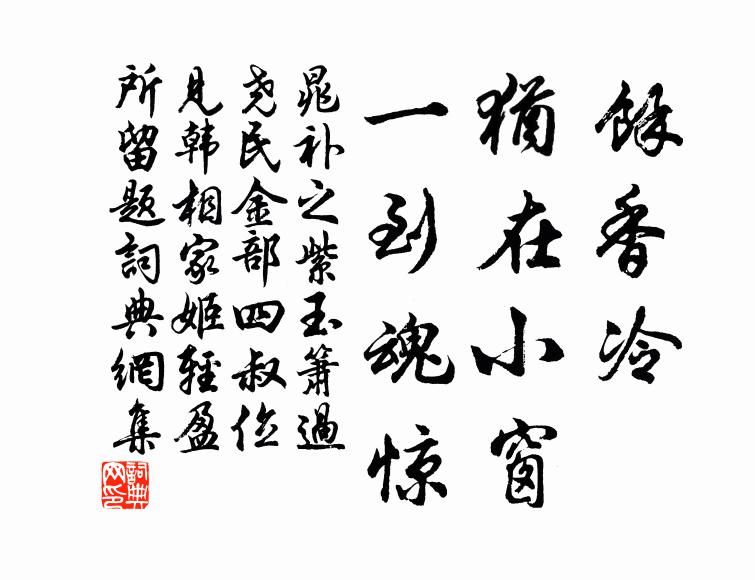 餘香冷
猶在小窗
一到魂惊
晁补之紫玉簫過
尧民金部四叔位
見韩相家姬輕盈
所留題詞典網集
詞典网印